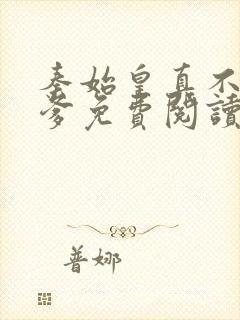 秦始皇真不
爹免費閱讀
普娜